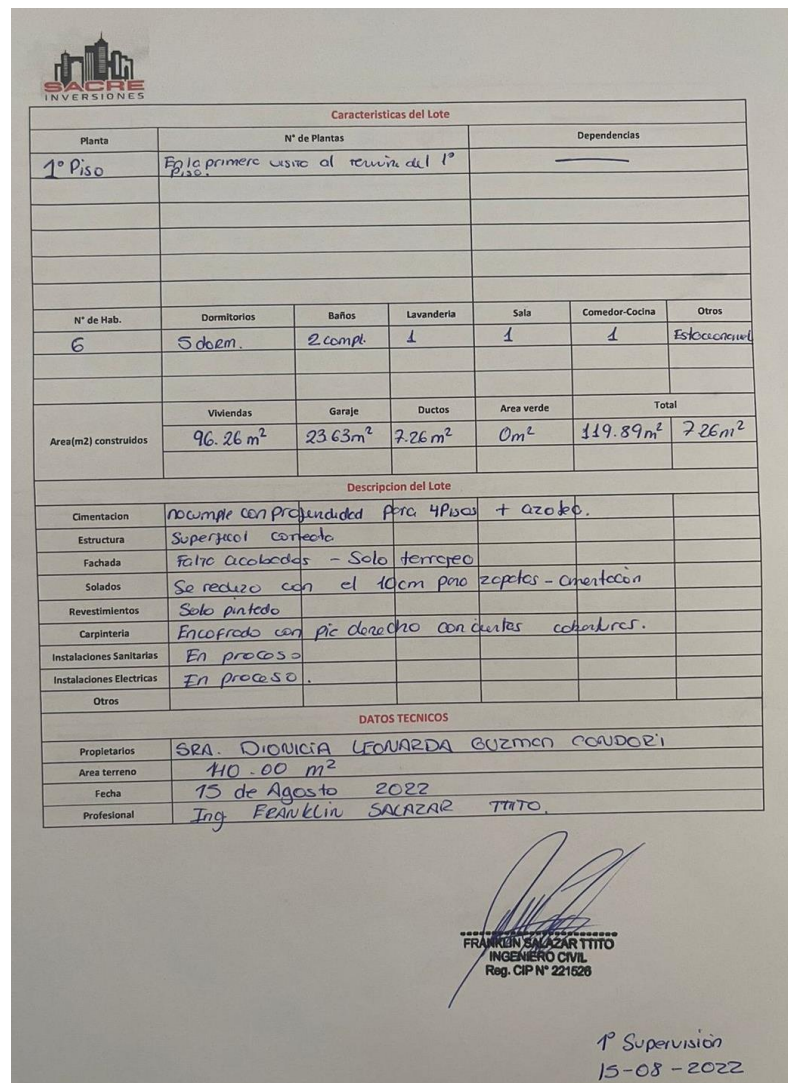 SACRE
INVERSIONES
Caracteristicas del Lote
Planta N° de Plantas Dependencias
1° Piso En la primera visita al termino del 1° Piso.
N° de Hab. Dormitorios Baños Lavanderia Sala Comedor-Cocina Otros
6 5 dorm. 2 compl. 1 1 1
Area(m2) construidos Viviendas Garaje Ductos Area verde Total
96.26 m² 23 63m² 7.26 m² 0m² 119.89m² 7 26m²
Descripcion del Lote
Cimentacion no cumple con profundidad para 4Pisos + azotea.
Estructura Superficial correcto
Fachada Falta acabados - Solo terrajeo
Solados Se reduzo con el 10cm para zapatas - cimentacion
Revestimientos Solo pintado
Carpinteria Encofrado con pie derecho con
Instalaciones Sanitarias En proceso
Instalaciones Electricas En proceso.
Otros
DATOS TECNICOS
Propietarios SRA. DIONICIA LEONARDA GUZMAN CONDORI
Area terreno 140.00 m²
Fecha 15 de Agosto 2022
Profesional Ing FRANKLIN SALAZAR TTITO.
FRANKLIN SALAZAR TTITO
INGENIERO CIVIL
Reg. CIP N° 221526
1° Supervisión
15-08-2022